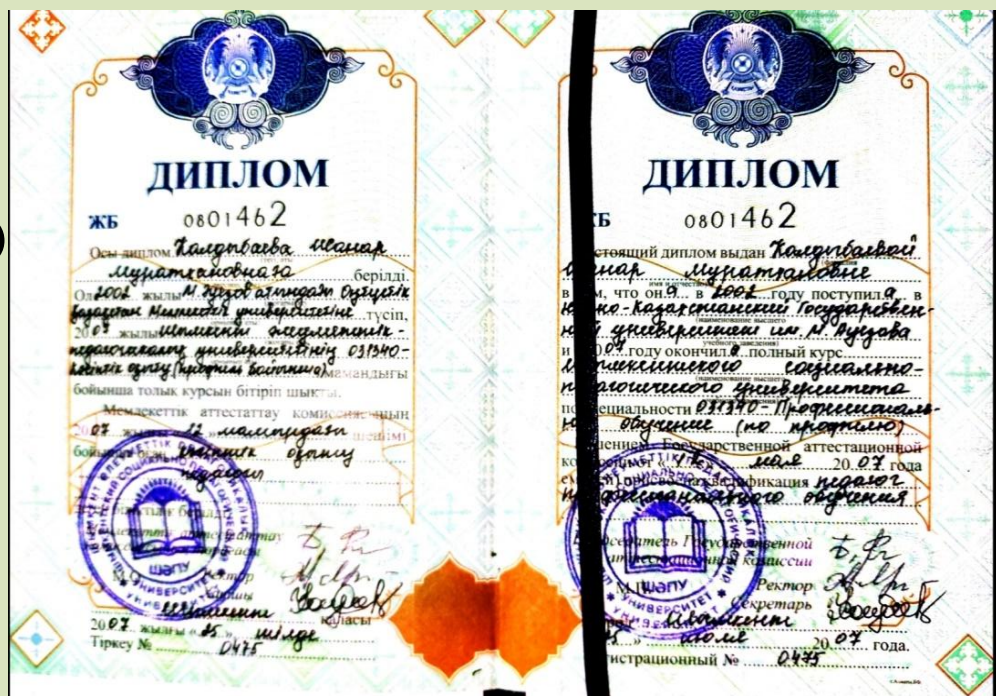 ДИПЛОМ
ЖБ 0801462
Осы диплом Калдыбаева Манар
Муратхановнаға берілді.
Ол 2002 жылы М Әуезов атындағы Оңтүстік
Қазақстан Мемлекет университетіне түсіп,
2007 жылы Шымкент әлеуметтік-
педагогикалық университетінің 031340-
Кәсіптік оқыту (профиль бойынша) мамандығы
бойынша толық курсын бітіріп шықты.
Мемлекеттік аттестаттау комиссиясының
2007 12 мамырдағы шешімі
бойынша кәсіптік оқыту
педагогі
берілді
аттестаттау
М.О. Ректор
Хатшы
Шымкент қаласы
2007 жылғы «25» шілде
Тіркеу № 0475
ШӘПУ
УНИВЕРСИТЕТ
ДИПЛОМ
ЖБ 0801462
стоящий диплом выдан Калдыбаевой
Манар Муратхановне
в том, что она в 2002 году поступила в
Южно-Казахстанский Государствен-
ный университет им. М. Ауезова
и 2007 году окончила полный курс
Шымкентского социально-
педагогического университета
по специальности 031340-Профессиональ-
ное обучение (по профилю)
решением Государственной аттестационной
комиссии от «12» мая 2007 года
ей присвоена квалификация педагог
профессионального обучения
Председатель Государственной
аттестационной комиссии
М.П. Ректор
Секретарь
Шымкент
25 июле 2007 года.
гистрационный № 0475
ШӘПУ
УНИВЕРСИТЕТ